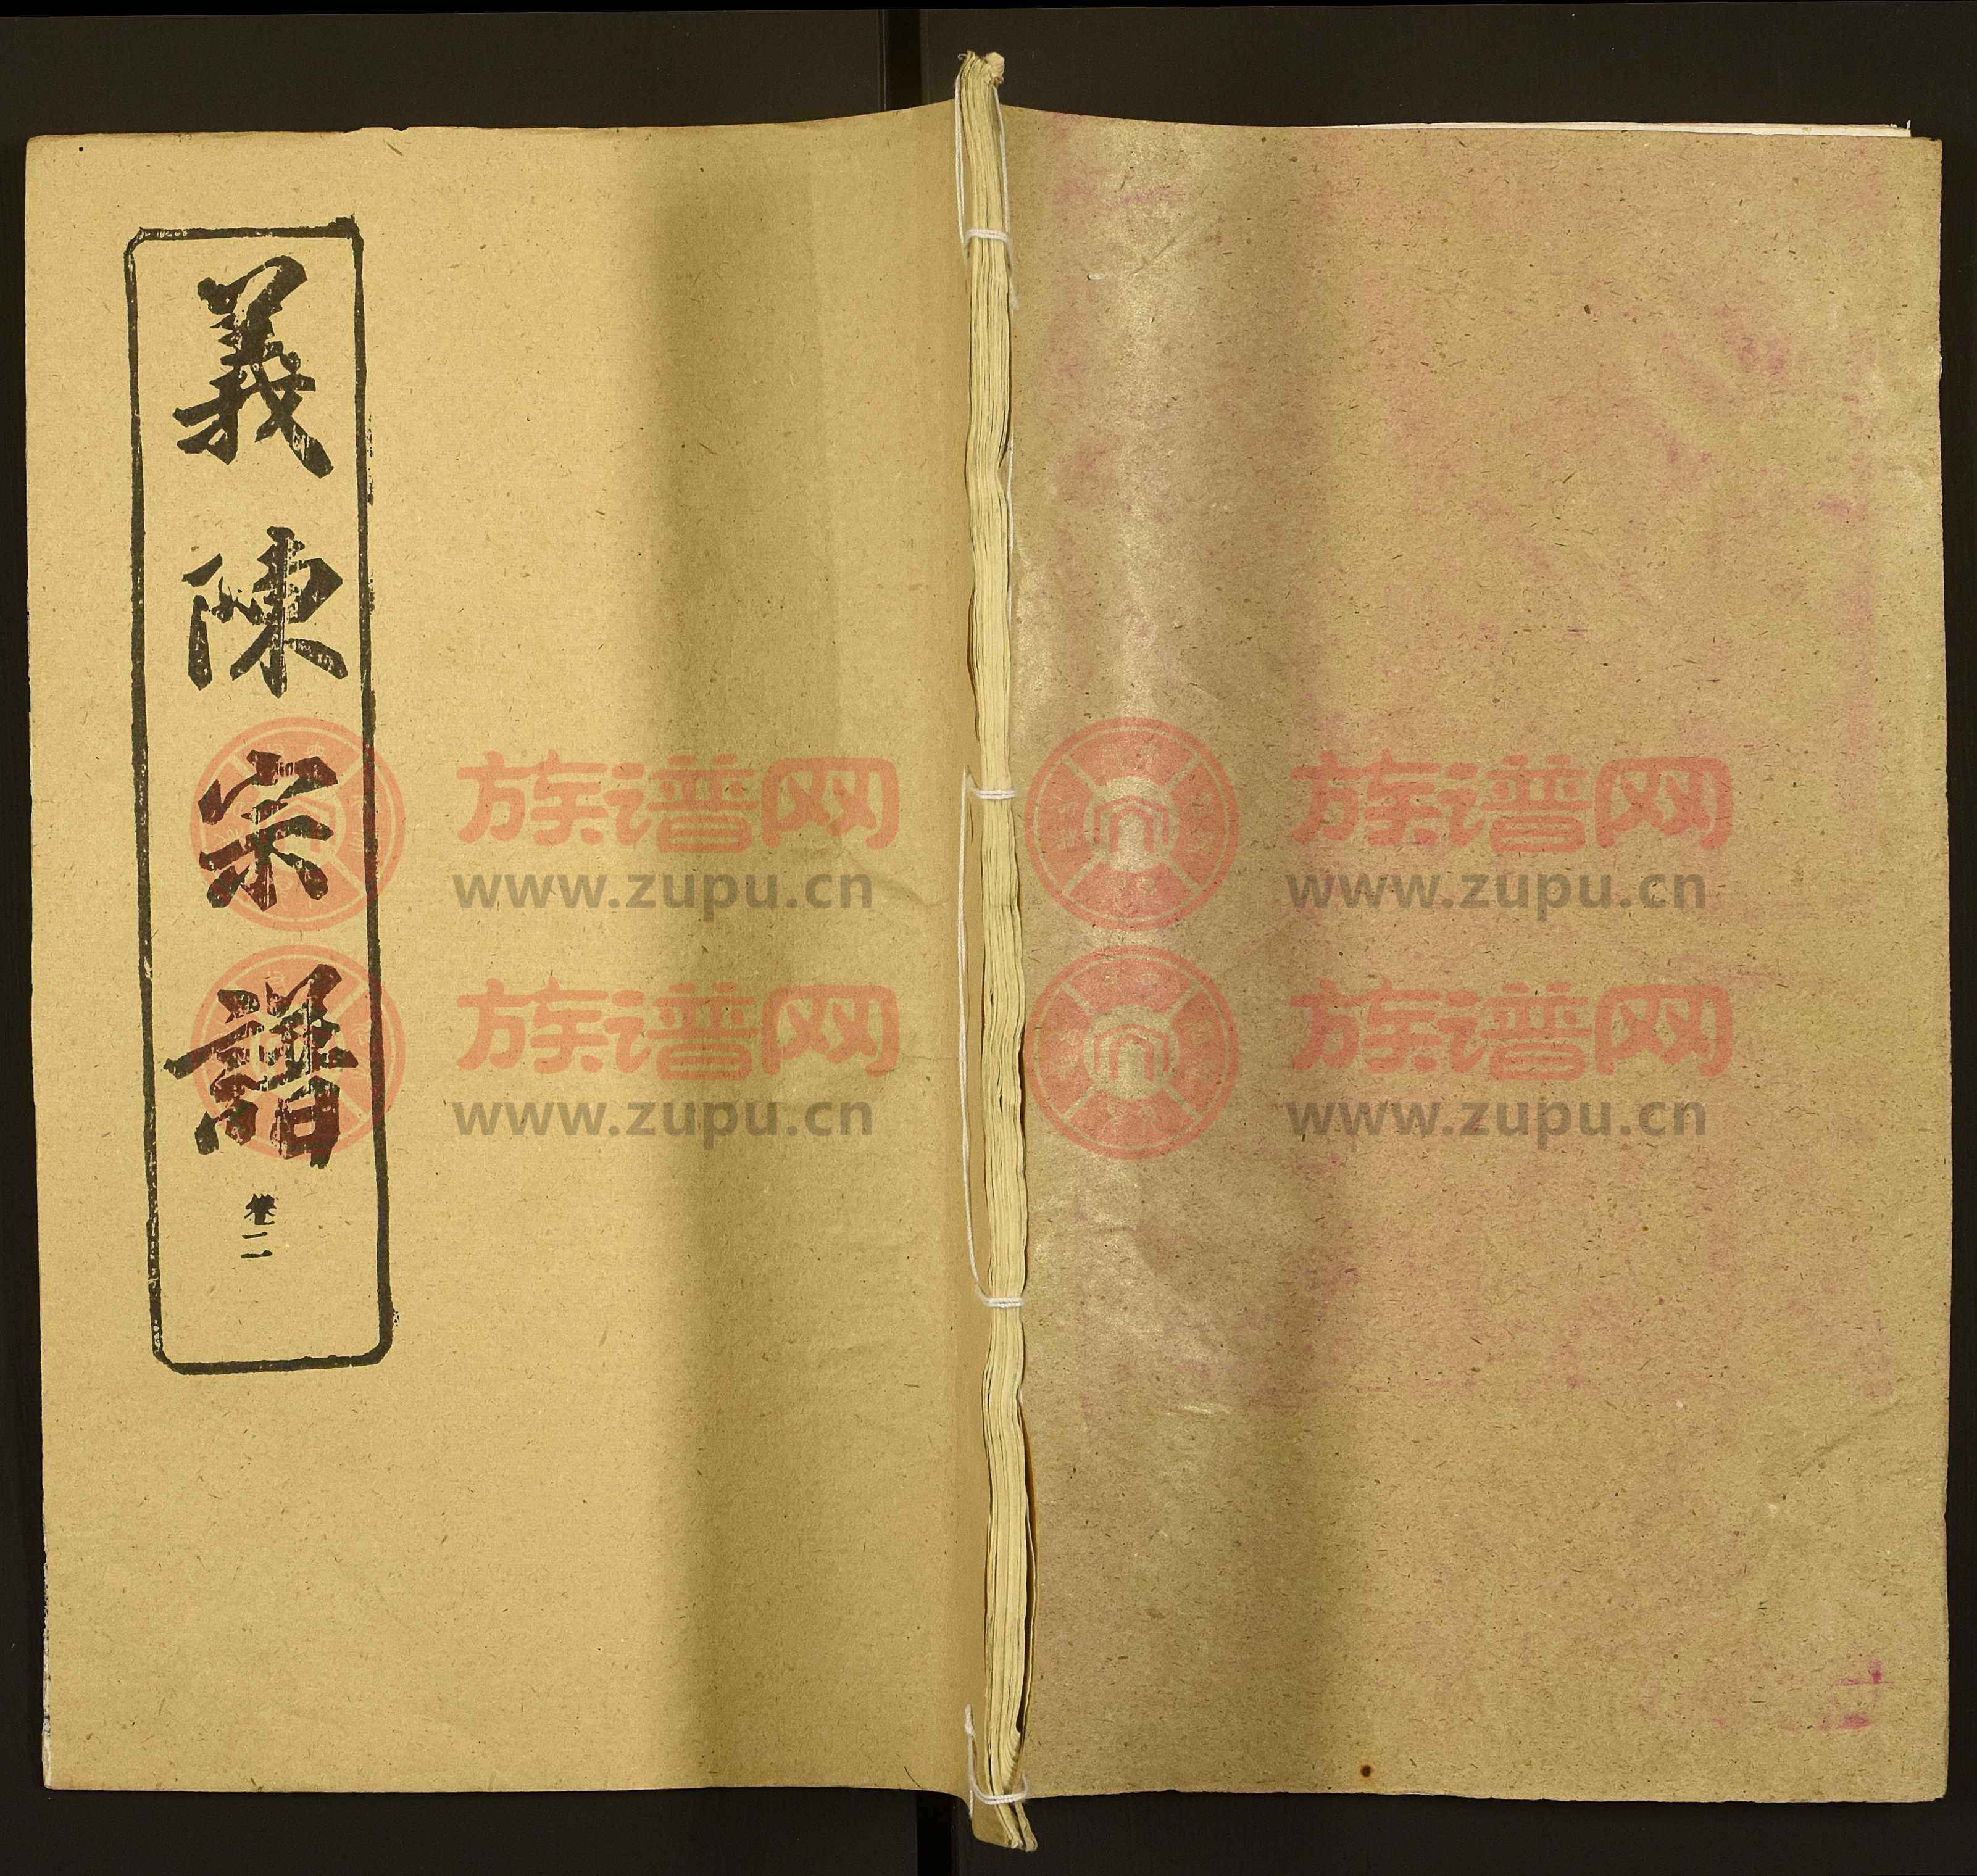 義陳宗譜
卷二
族谱网
www.zupu.cn
族谱网
www.zupu.cn
族谱网
www.zupu.cn
族谱网
www.zupu.cn